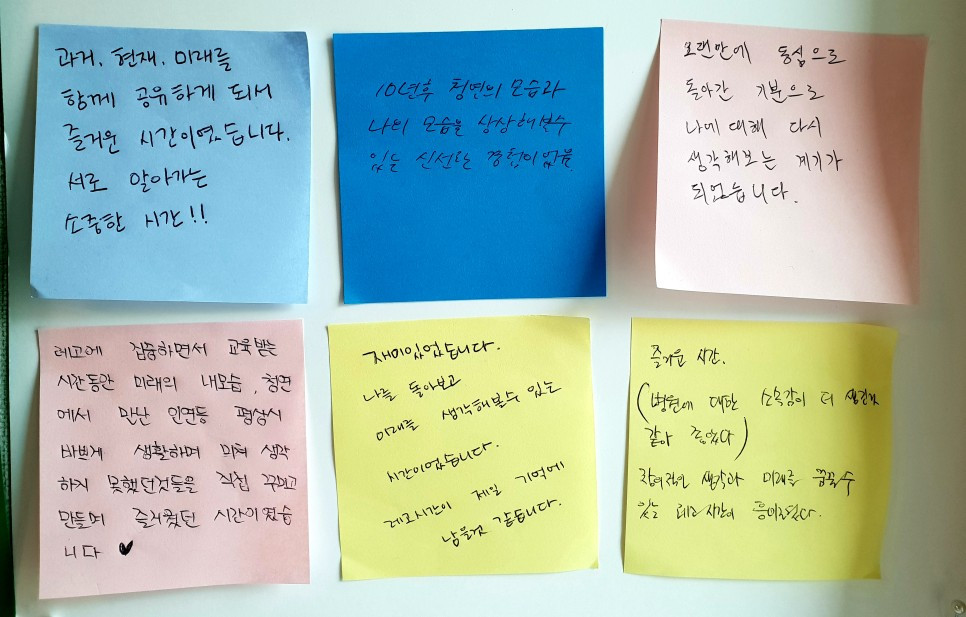 과거, 현재, 미래를
함께 공유하게 되서
즐거운 시간이였습니다.
서로 알아가는
소중한 시간!!
10년후 청연의 모습과
나의 모습을 상상해볼수
있는 신선한 경험이었음.
오랜만에 동심으로
돌아간 기분으로
나에 대해 다시
생각해보는 계기가
되었습니다.
레고에 집중하면서 교육받는
시간동안 미래의 내모습, 청연
에서 만난 인연등 평상시
바쁘게 생활하며 미쳐 생각
하지 못했던것들을 직접 꾸미고
만들며 즐거웠던 시간이였습
니다 ♥
재미있었습니다.
나를 돌아보고
미래를 생각해볼수 있는
시간이었습니다.
레고시간이 제일 기억에
남을것 같습니다.
즐거운 시간.
(병원에 대한 소속감이 더 생긴거
같아 좋았다)
창의적인 생각과 미래를 꿈꿀수
있는 레고시간이 흥미로웠다.